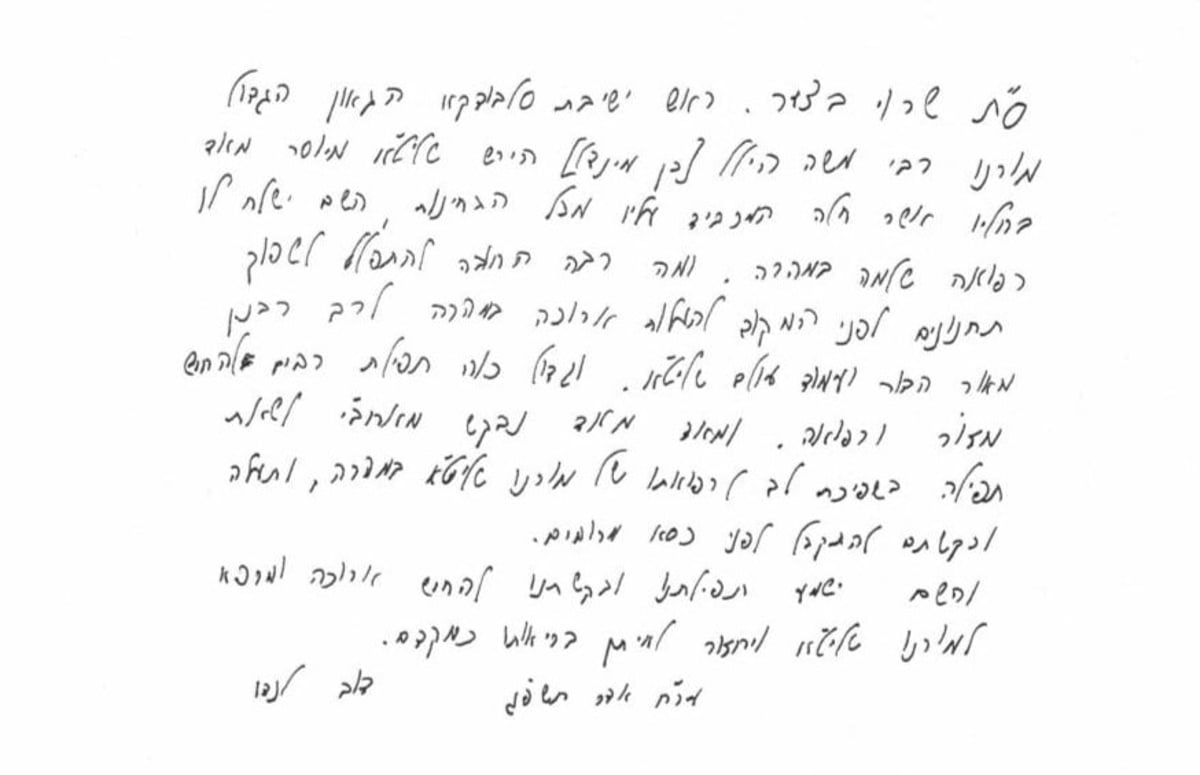 ס"ת שרוי בצער. ראש ישיבת סלבודקא הגאון הגדול
מורנו רבי משה הילל [בן מינדל] הירש שליט"א מיוסר מאד
בחליו אשר חלה המכביד עליו מכל הבחינות, השם ישלח לו
רפואה שלמה במהרה. ומה רבה החובה להתפלל לשפוך
תחנונים לפני המקום להעלות ארוכה במהרה לרב רבנן
מאור הדור ועמוד עולם שליט"א. וגדול כוח תפילת רבים להחיש
מזור ורפואה. ומאד מאוד נבקש מאחב"י לשאת
תפילה בשפיכת לב לרפואתו של מורנו שליט"א במהרה, ותעלה
ובקשתם להתקבל לפני כסא מרומים.
והשם ישמע תפילתנו ובקשתנו להחיש ארוכה ומרפא
למורנו שליט"א ויחזור לאיתן בריאותו כמקדם.
ער"ח אדר תשפ"ג דוב לנדו